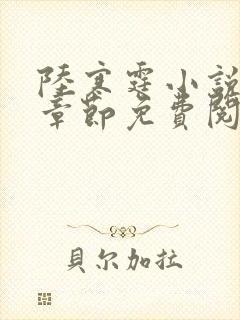 陸寒霆小說
章節免費閱
貝尔加拉